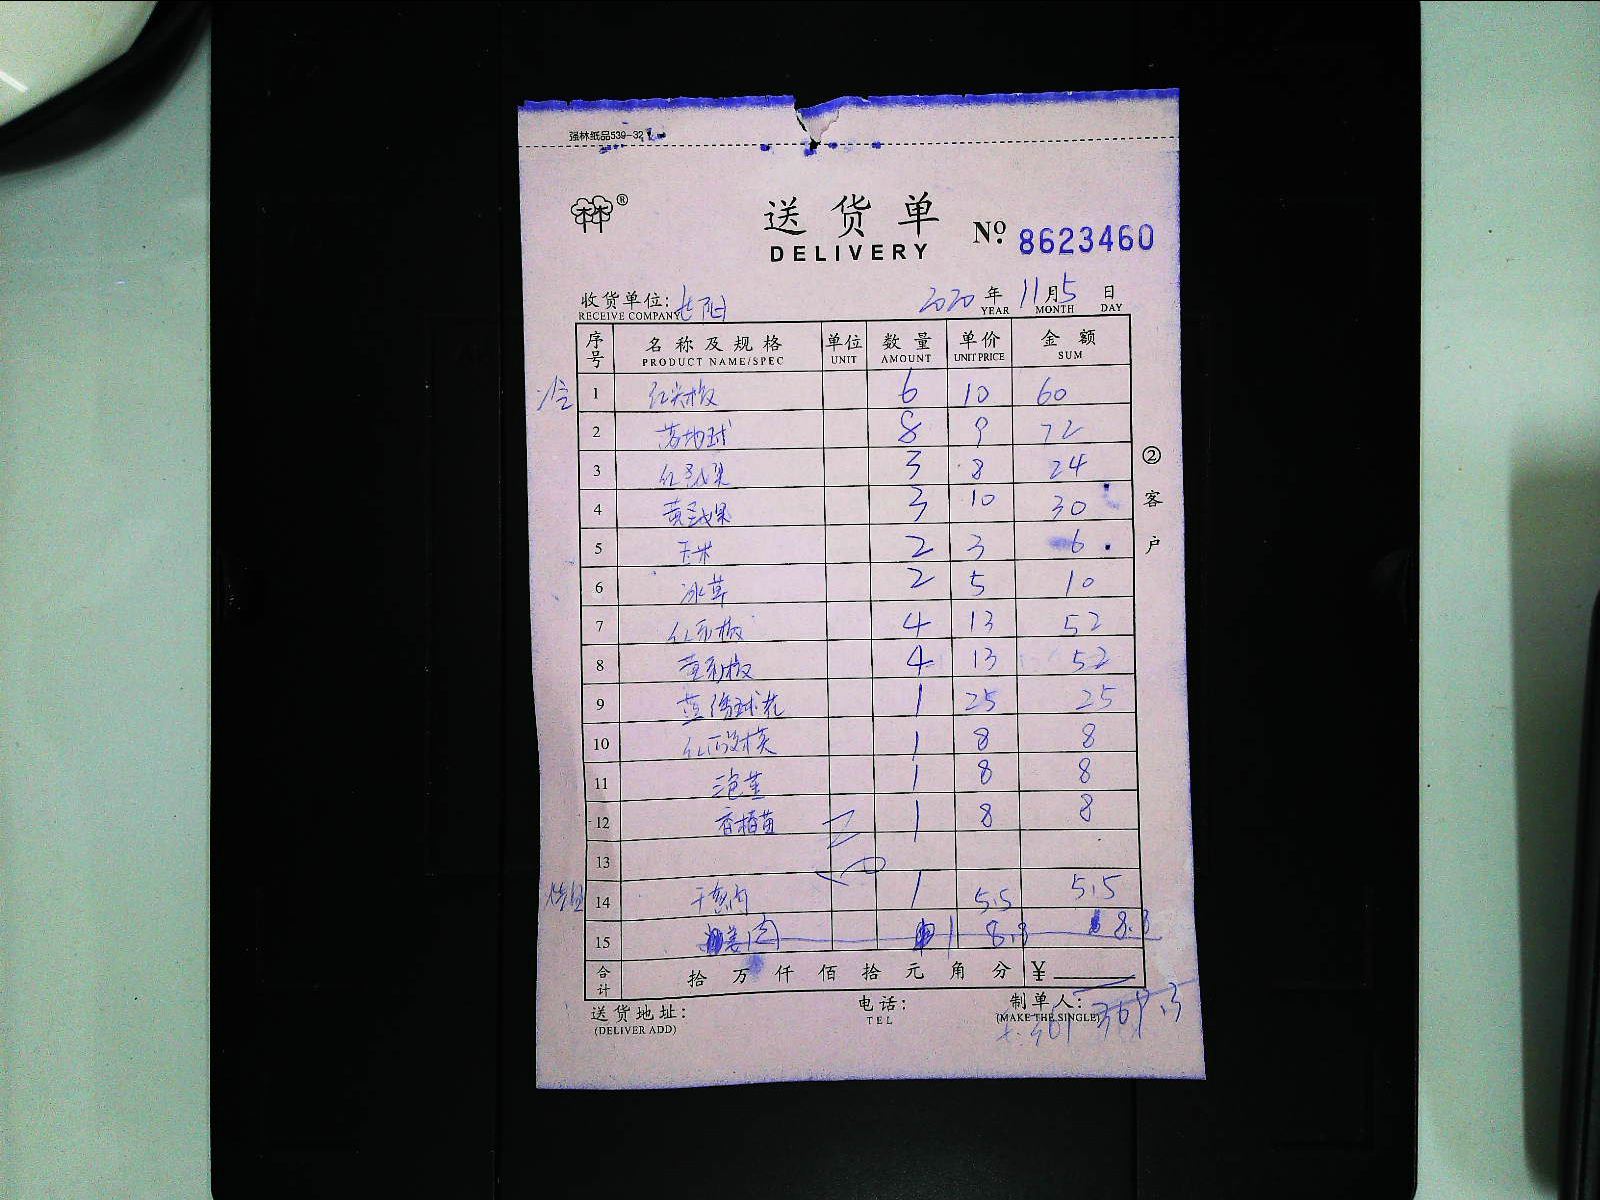 强林纸品539-32
®
送货单
DELIVERY
No. 8623460
收货单位: 七阳 2020 年 11 月 5 日
RECEIVE COMPANY YEAR MONTH DAY
序号 名称及规格 单位 数量 单价 金额
PRODUCT NAME/SPEC UNIT AMOUNT UNIT PRICE SUM
1 红尖椒 6 10 60
2 落地球 8 9 72
3 红圣女果 3 8 24
4 黄圣女果 3 10 30
5 玉米 2 3 6
6 冰草 2 5 10
7 红彩椒 4 13 52
8 黄彩椒 4 13 52
9 25 25
10 1 8 8
11 1 8 8
12 香椿苗 1 8 8
13
14 干葱肉 1 5.5 5.5
15 姜肉 1 8.3 8.3
合计 拾 万 仟 佰 拾 元 角 分 ¥
369.3
送货地址: 电话: 制单人:
(DELIVER ADD) TEL (MAKE THE SINGLE)
361
②客户